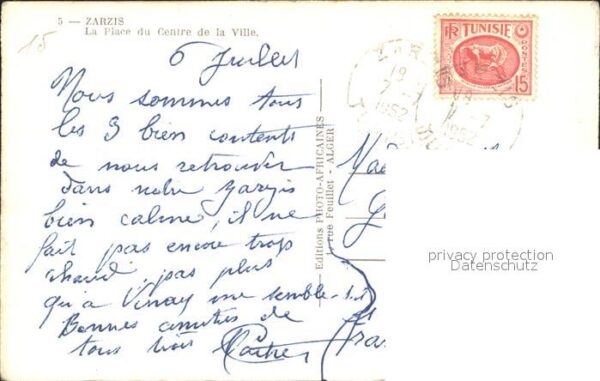 5 — ZARZIS
La Place du Centre de la Ville.
15
6 Juillet
Nous sommes tous
les 3 bien contents
de nous retrouver
dans notre Zarzis
bien calme, il ne
fait pas encore trop
chaud, pas plus
qu'à Vinay me semble-t-il
Bonnes amitiés de
tous trois
Editions PHOTO-AFRICAINES
1, rue Feuillet - ALGER
RF TUNISIE
POSTES
15
19
7 - 7
1952
1952
privacy protection
Datenschutz